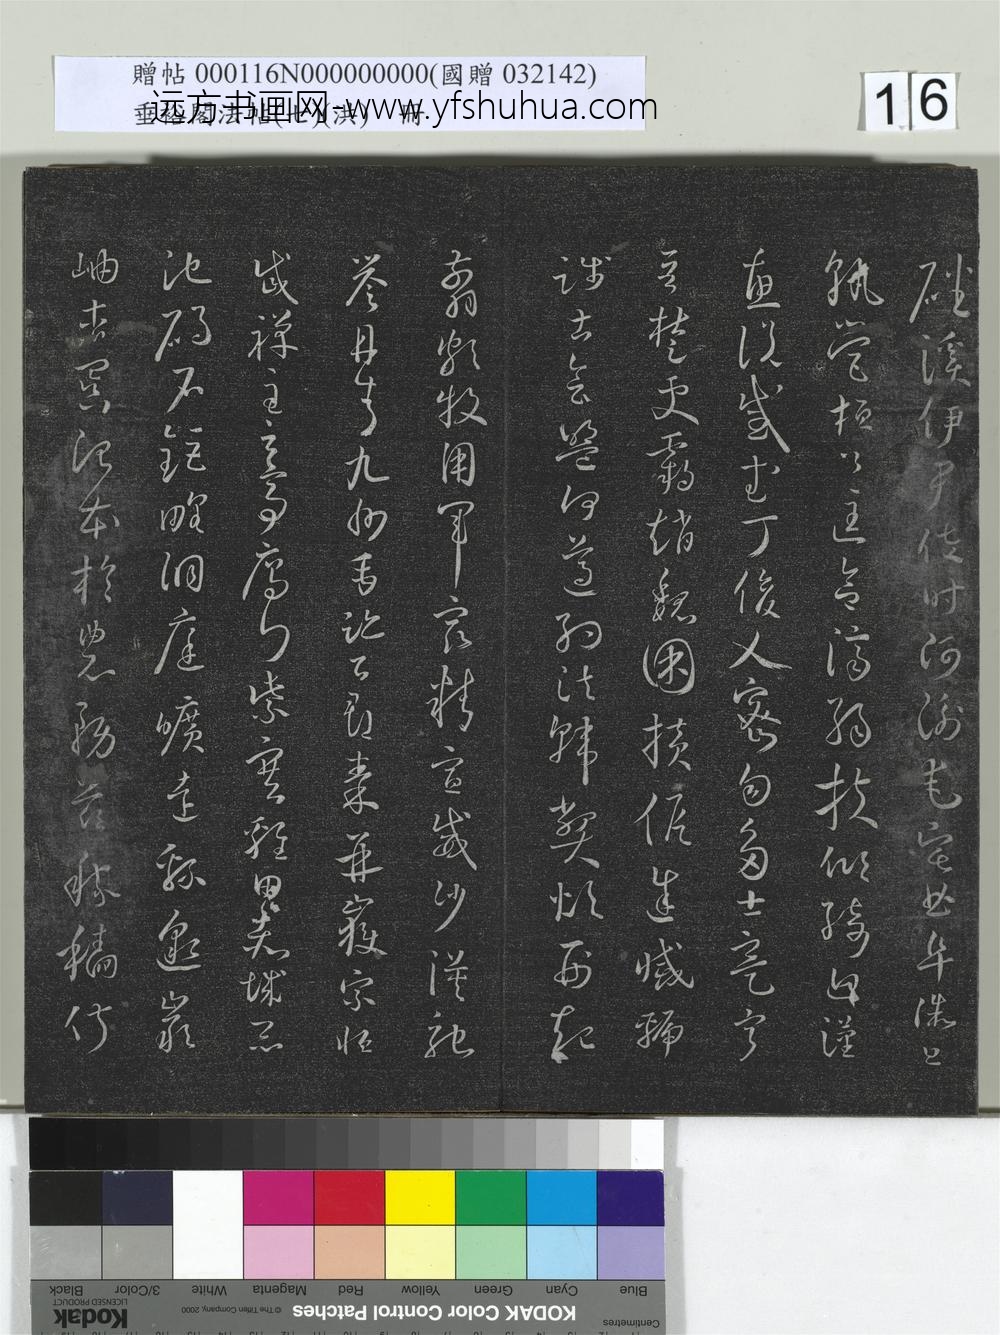 贈帖 000116N000000000(國贈 032142)
垂裕閣法帖(七)(洪) 冊
远方书画网-www.yfshuhua.com
16
磻溪伊尹佐時阿衡奄宅曲阜微旦
孰營桓公匡合濟弱扶傾綺迴漢
惠說感武丁俊乂密勿多士寔寧
晉楚更霸趙魏困橫假途滅虢
踐土會盟何遵約法韓弊煩刑起
翦頗牧用軍最精宣威沙漠馳
譽丹青九州禹跡百郡秦并嶽宗恆
岱禪主云亭雁門紫塞雞田赤城昆
池碣石鉅野洞庭曠遠綿邈巖
岫杳冥治本於農務茲稼穡俶
Blue Cyan Green Yellow Red Magenta White 3/Color Black
Centimetres KODAK Color Control Patches © The Tiffen Company, 2000 Kodak LICENSED PRODUCT